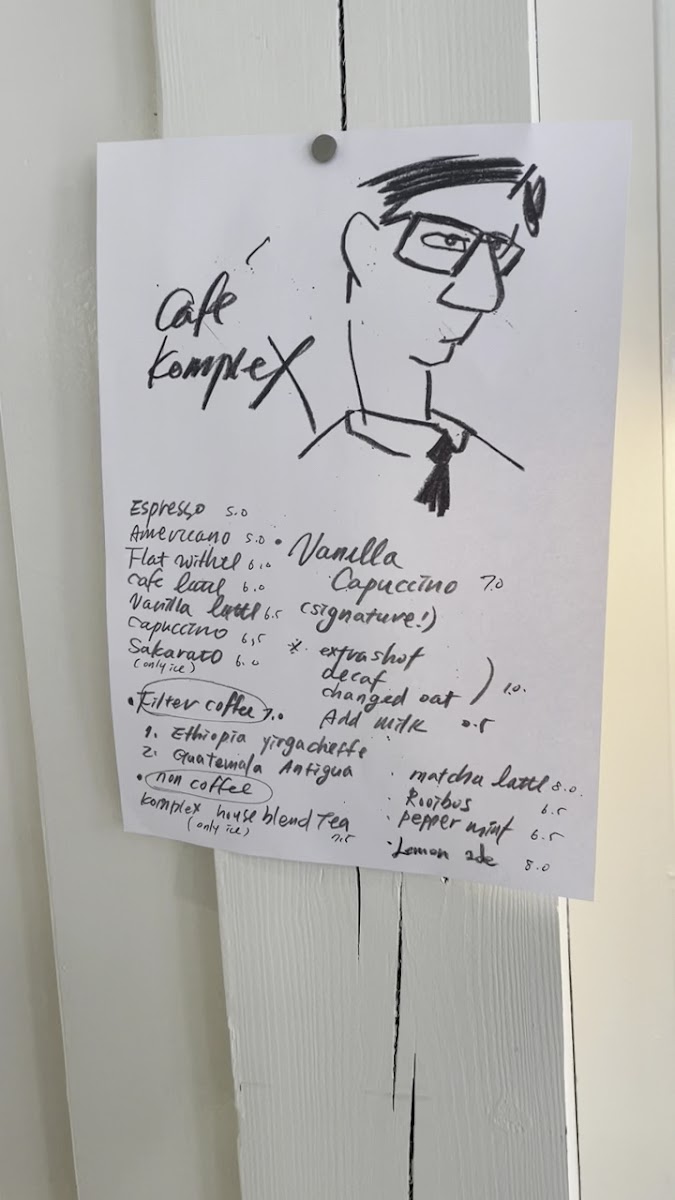 Café
Komplex
Espresso 5.0
Americano 5.0
Flat withte 6.0
cafe latte 6.0
Vanilla latte 6.5
Capuccino 6,5
Sakarato 6.0
(only ice)
• Vanilla
Capuccino 7.0
(signature!)
* extra shot
decaf
changed oat ) 1.0.
Add milk 0.5
• Filter coffee 7.0
1. Ethiopia yirgacheffe
2. Guatemala Antigua
• non coffee
Komplex house blend Tea
(only ice) 7.5
· matcha latte 8.0.
· Rooibus 6.5
· pepper mint 6.5
· Lemon ade 8.0